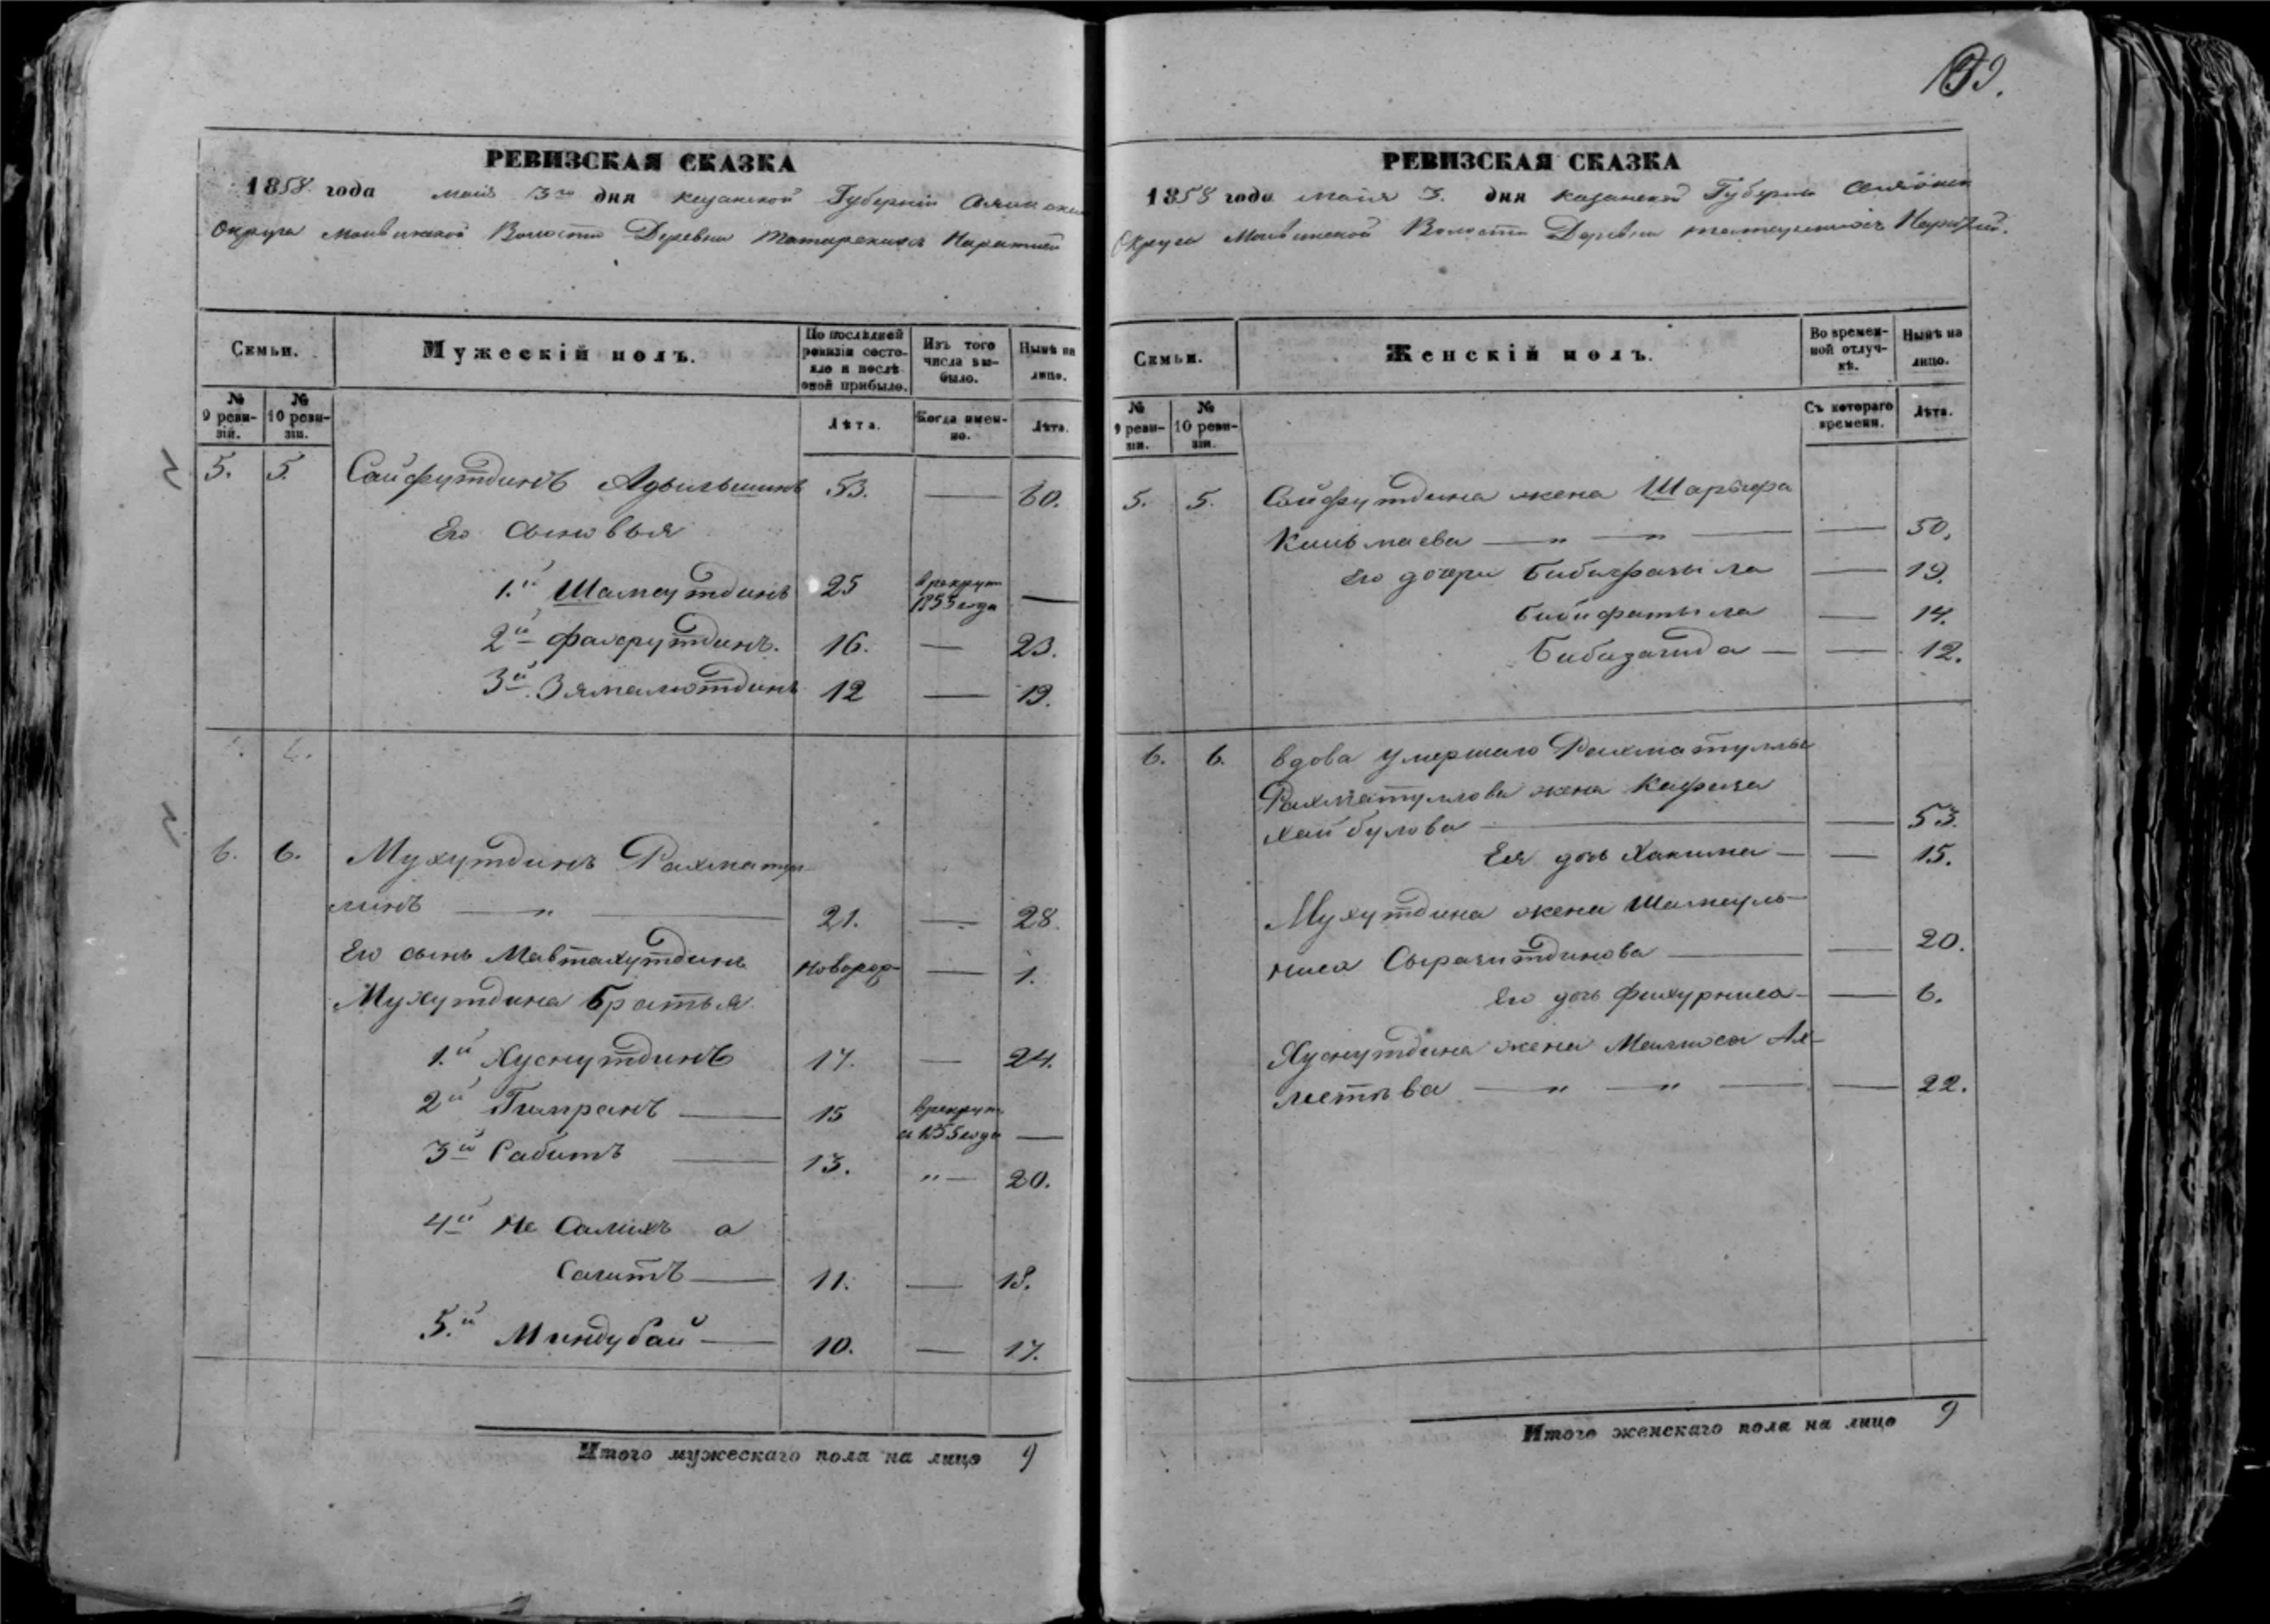 РЕВИЗСКАЯ СКАЗКА
1858 года маія 3го дня казанской Губерніи
Округа Волости Деревни Татарскихъ Наратлей
Семьи.
Мужескій полъ.
По послѣдней ревизіи состояло и послѣ оной прибыло.
Изъ того числа выбыло.
Нынѣ на лицо.
№ 9 ревизіи.
№ 10 ревизіи.
Лѣта.
Когда именно.
Лѣта.
5. 5. Сайфутдинъ 53. — 60.
Его сыновья
1.й Шамсутдинъ 25 в рекрут 1855 года —
2й Фахрутдинъ. 16. — 23.
3й Зямалютдинъ 12 — 19.
6. 6. Мухутдинъ Рахмату-
линъ — „ — 21. — 28.
Его сынъ Мавтахутдинъ новорож — 1.
Мухутдина братья
1.й Хуснутдинъ 17. — 24.
2й Гимранъ — 15 в рекрут 1855 года —
3й Сабитъ — 13. „ — 20.
4й Не Салихъ а
Сагитъ — 11. — 18.
5.й Миндубай — 10. — 17.
Итого мужескаго пола на лицо 9
РЕВИЗСКАЯ СКАЗКА
1858 года маія 3. дня казанской Губерніи
Округа Волости Деревни Татарскихъ Наратлей.
Семьи.
Женскій полъ.
Во временной отлучкѣ.
Нынѣ на лицо.
№ 9 ревизіи.
№ 10 ревизіи.
Съ котораго времени.
Лѣта.
5. 5. Сайфутдина жена
— „ — „ — — 50.
Его дочери — 19.
— 14.
Бибизагида — — 12.
6. 6. вдова умершаго Рахматуллы
Рахматуллова жена
Хайбулова — — 53.
Ея дочь Хакима — — 15.
Мухутдина жена Шамсуль-
ниса Сыразитдинова — — 20.
Его дочь Фахурниса — — 6.
Хуснутдина жена Ах-
метѣва — „ — „ — — 22.
Итого женскаго пола на лицо 9